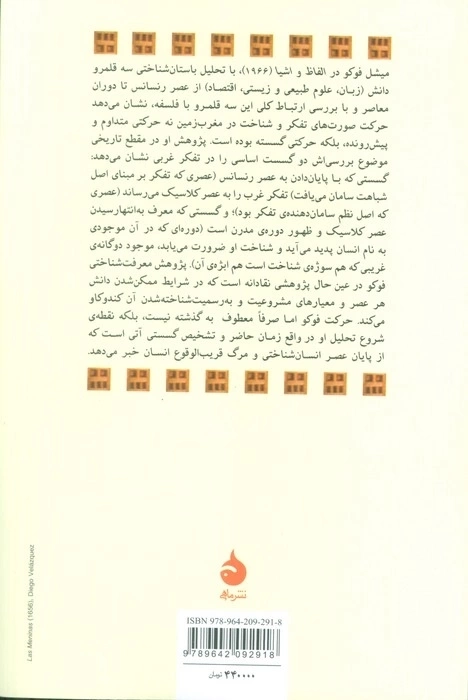 میشل فوکو در الفاظ و اشیا (۱۹۶۶)، با تحلیل باستان‌شناختی سه قلمرو
دانش (زبان، علوم طبیعی و زیستی، اقتصاد) از عصر رنسانس تا دوران
معاصر و با بررسی ارتباط کلی این سه قلمرو با فلسفه، نشان می‌دهد
حرکت صورت‌های تفکر و شناخت در مغرب‌زمین نه حرکتی متداوم و
پیش‌رونده، بلکه حرکتی گسسته بوده است. پژوهش او در مقطع تاریخی
موضوع بررسی‌اش دو گسست اساسی را در تفکر غربی نشان می‌دهد:
گسستی که با پایان‌دادن به عصر رنسانس (عصری که تفکر بر مبنای اصل
شباهت سامان می‌یافت) تفکر غرب را به عصر کلاسیک می‌رساند (عصری
که اصل نظم سامان‌دهنده‌ی تفکر بود)؛ و گسستی که معرف به‌انتهارسیدن
عصر کلاسیک و ظهور دوره‌ی مدرن است (دوره‌ای که در آن موجودی
به نام انسان پدید می‌آید و شناخت او ضرورت می‌یابد، موجود دوگانه‌ی
غریبی که هم سوژه‌ی شناخت است هم ابژه‌ی آن). پژوهش معرفت‌شناختی
فوکو در عین حال پژوهشی نقادانه است که در شرایط ممکن‌شدن دانش
هر عصر و معیارهای مشروعیت و به‌رسمیت‌شناخته‌شدن آن کندوکاو
می‌کند. حرکت فوکو اما صرفاً معطوف به گذشته نیست، بلکه نقطه‌ی
شروع تحلیل او در واقع زمان حاضر و تشخیص گسستی آتی است که
از پایان عصر انسان‌شناختی و مرگ قریب‌الوقوع انسان خبر می‌دهد.
Las Meninas (1656), Diego Velázquez
نشر ماهی
ISBN 978-964-209-291-8
9789642092918
۴۴۰۰۰۰ تومان